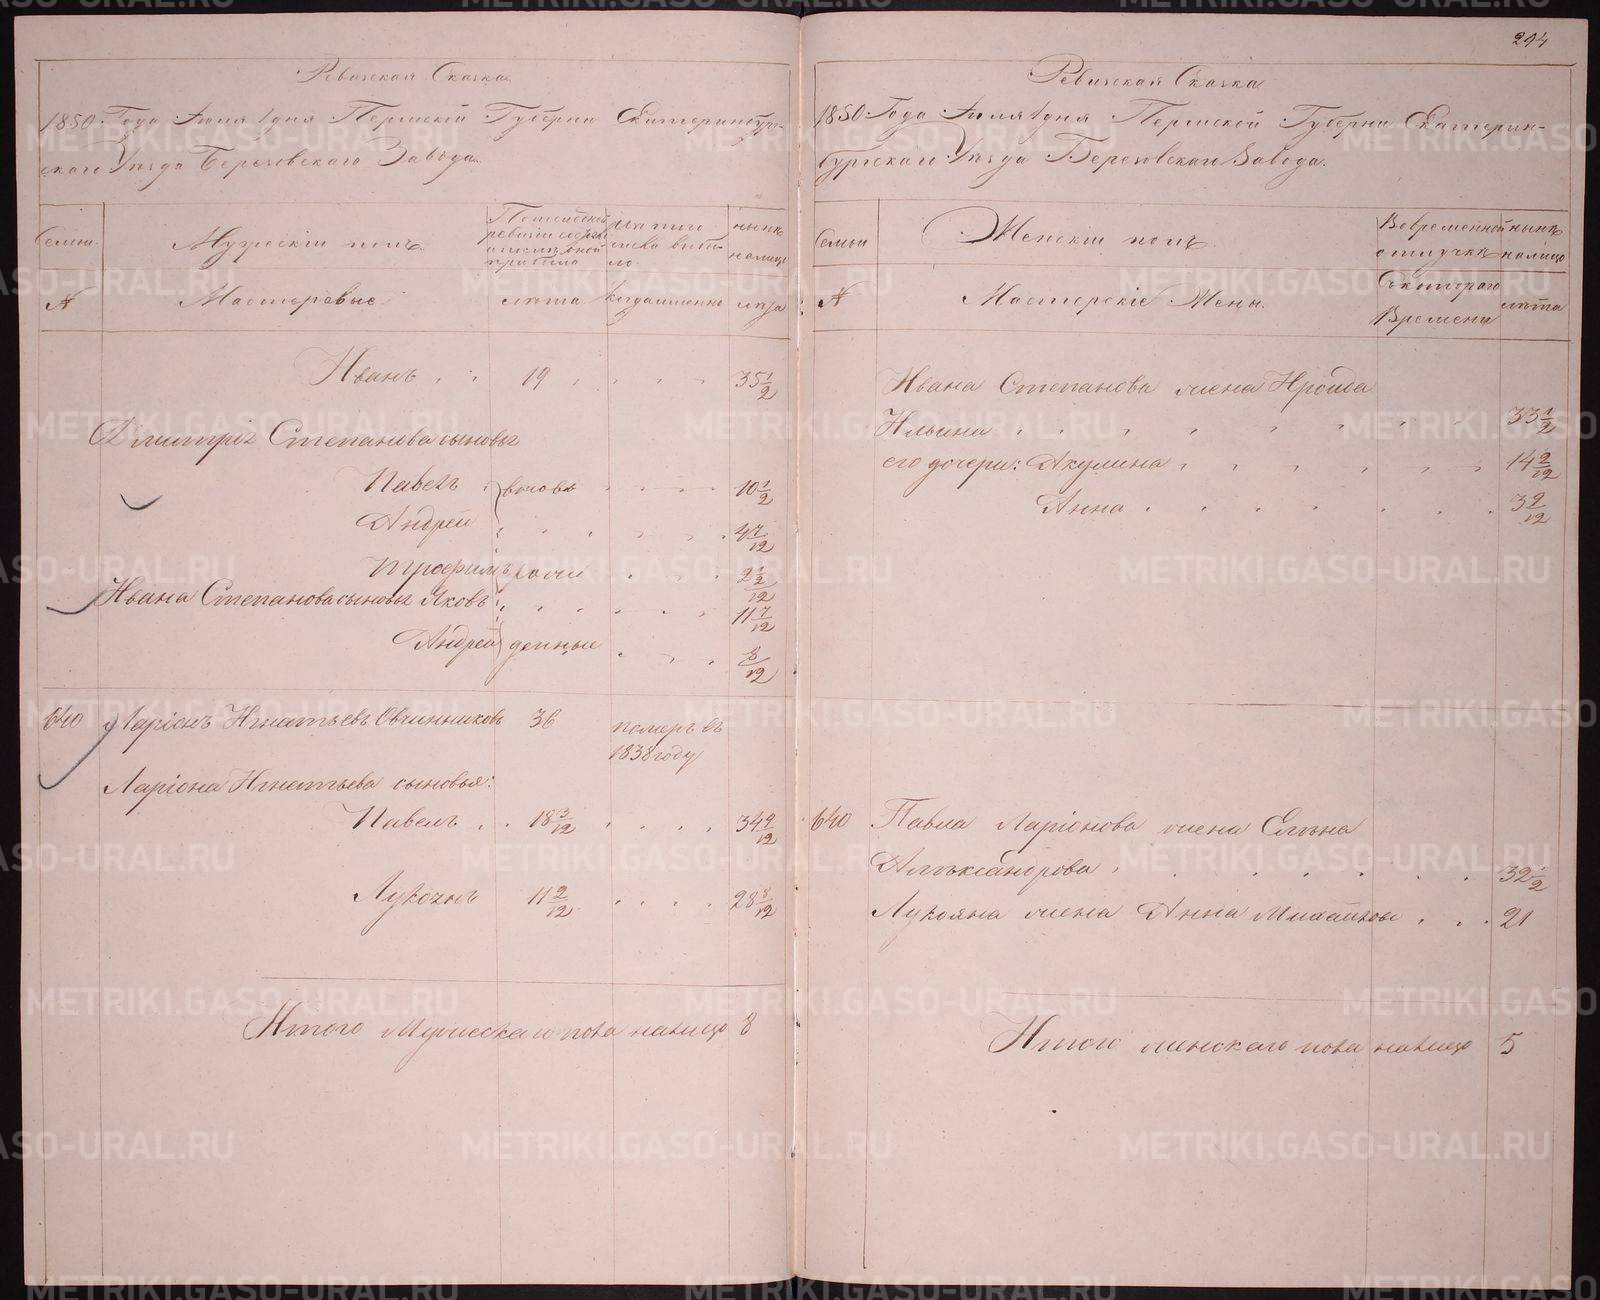 294
Ревизская Сказка
1850 Года Июля 1 дня Пермской Губерни Екатеринбург-
скаго Уѣзда Березовскаго Завода.
Семьи
Мужескій полъ.
По послѣдней
ревизіи состо
нынѣ
налицо
№
Мастеровые
лѣта
когда именно
лѣта
Иванъ 19 35 1/2
Дмитрія Степанова сыновья
Павелъ вновь 10 1/2
Андрей 4 7/12
Трофимъ рож
Ивана Степанова сыновья Яковъ 11 7/12
Андрей денные 8/12
640 Ларіонъ Игнатьевъ Овчинниковъ 36 померъ въ
1838 году
Ларіона Игнатьева сыновья:
Павелъ 18 3/12 34 9/12
Лукоянъ 11 2/12 28 8/12
Итого Мужескаго пола налицо 8
Ревизская Сказка
1850 Года Июля 1 дня Пермской Губерни Екатерин-
бургскаго Уѣзда Березовскаго Завода.
Семьи
Женскій полъ
Во временной
отлучкѣ
нынѣ
налицо
№
Мастерскіе Жены.
Съ котораго
Времени
лѣта
Ивана Степанова жена Ироида
Ильина 33 1/2
его дочери: Акулина 14 2/12
Анна 3 9/12
640 Павла Ларіонова жена Елѣна
Алѣксандрова 32 1/2
Лукояна жена Анна Михайлова 21
Итого женскаго пола налицо 5
METRIKI.GASO-URAL.RU